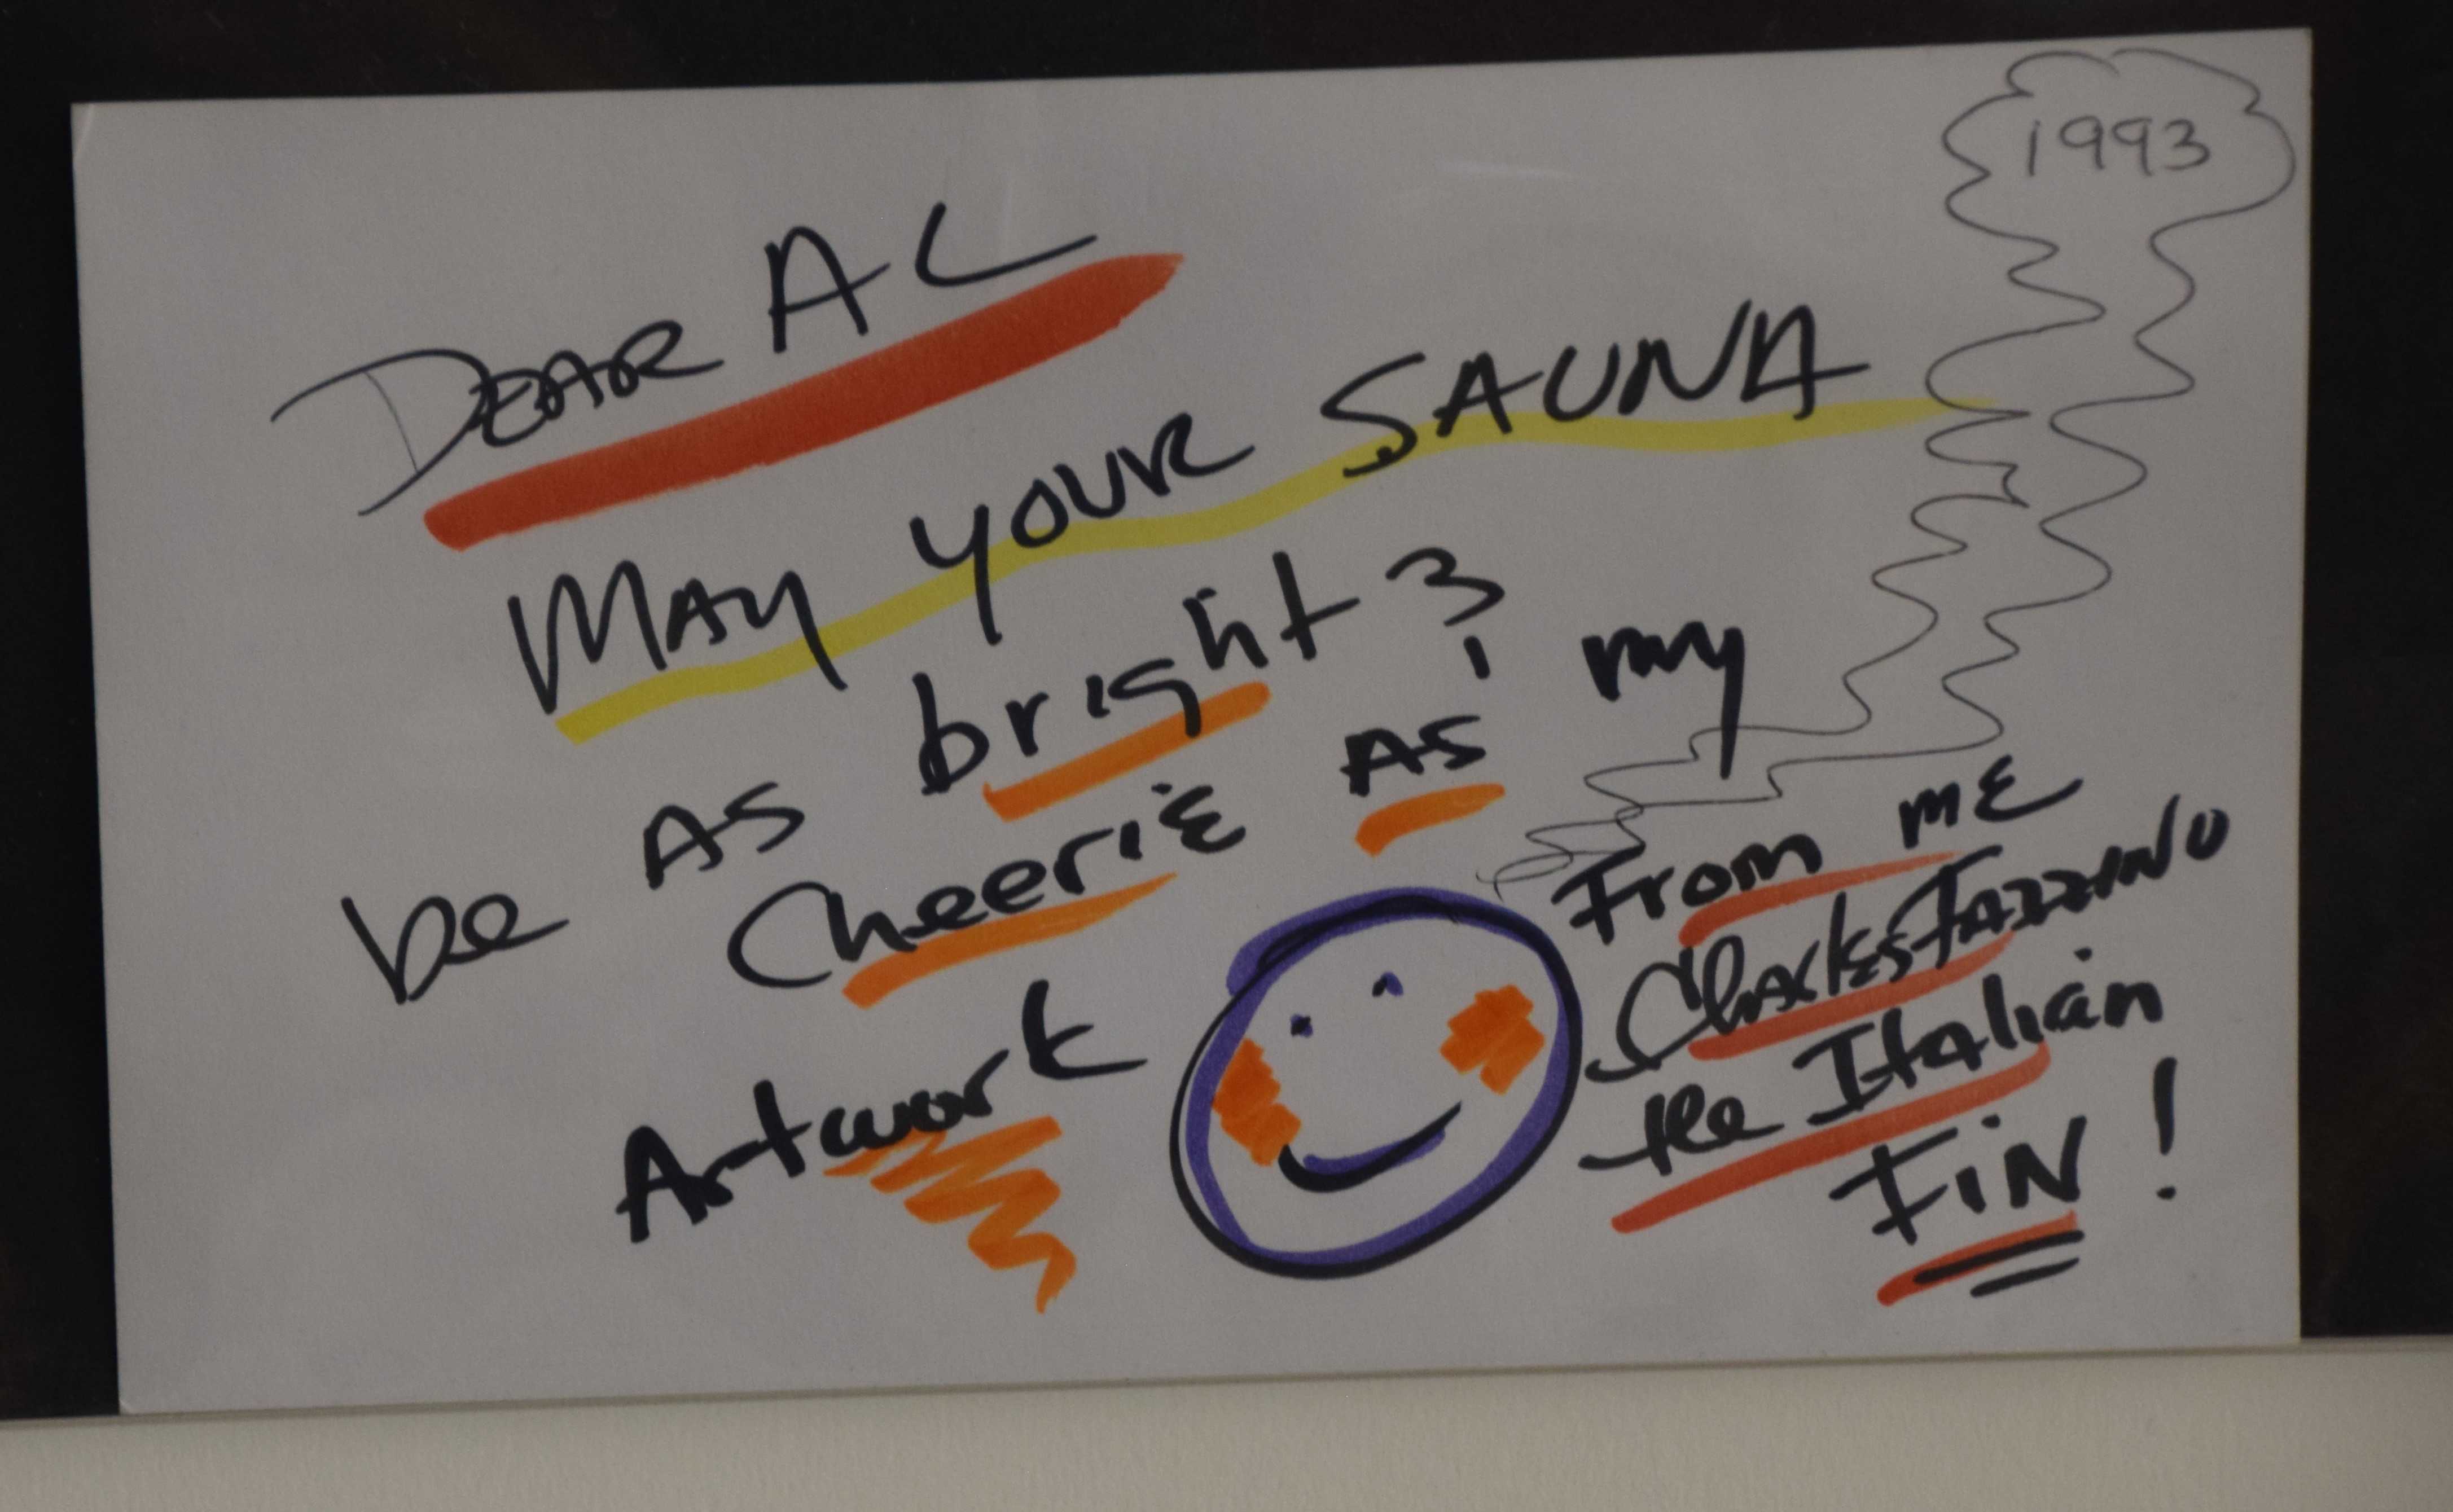 1993
DEAR AL
MAY YOUR SAUNA
be AS bright &
CheeriE AS my
Artwork
From mE
Charles FAZZINO
the Italian
FiN!